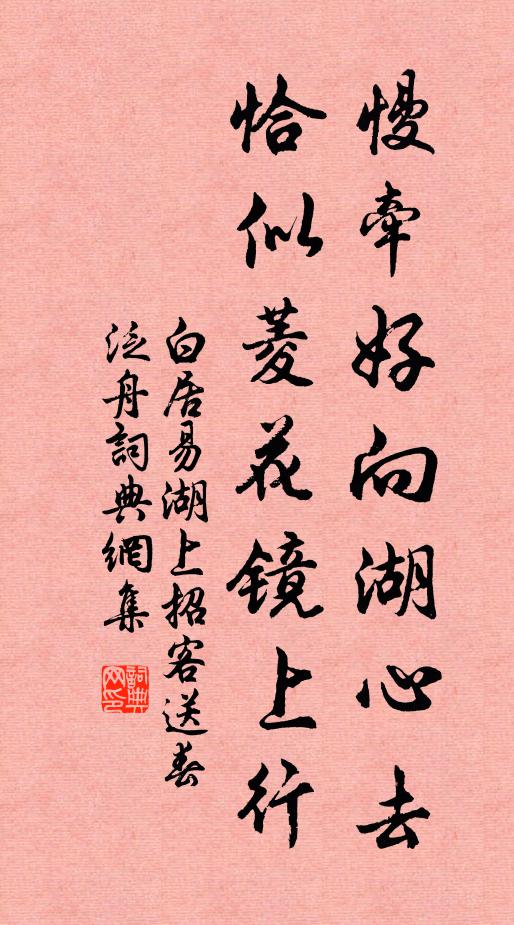 慢牽好向湖心去
恰似菱花镜上行
白居易湖上招客送春
泛舟詞典網集
詞典网印